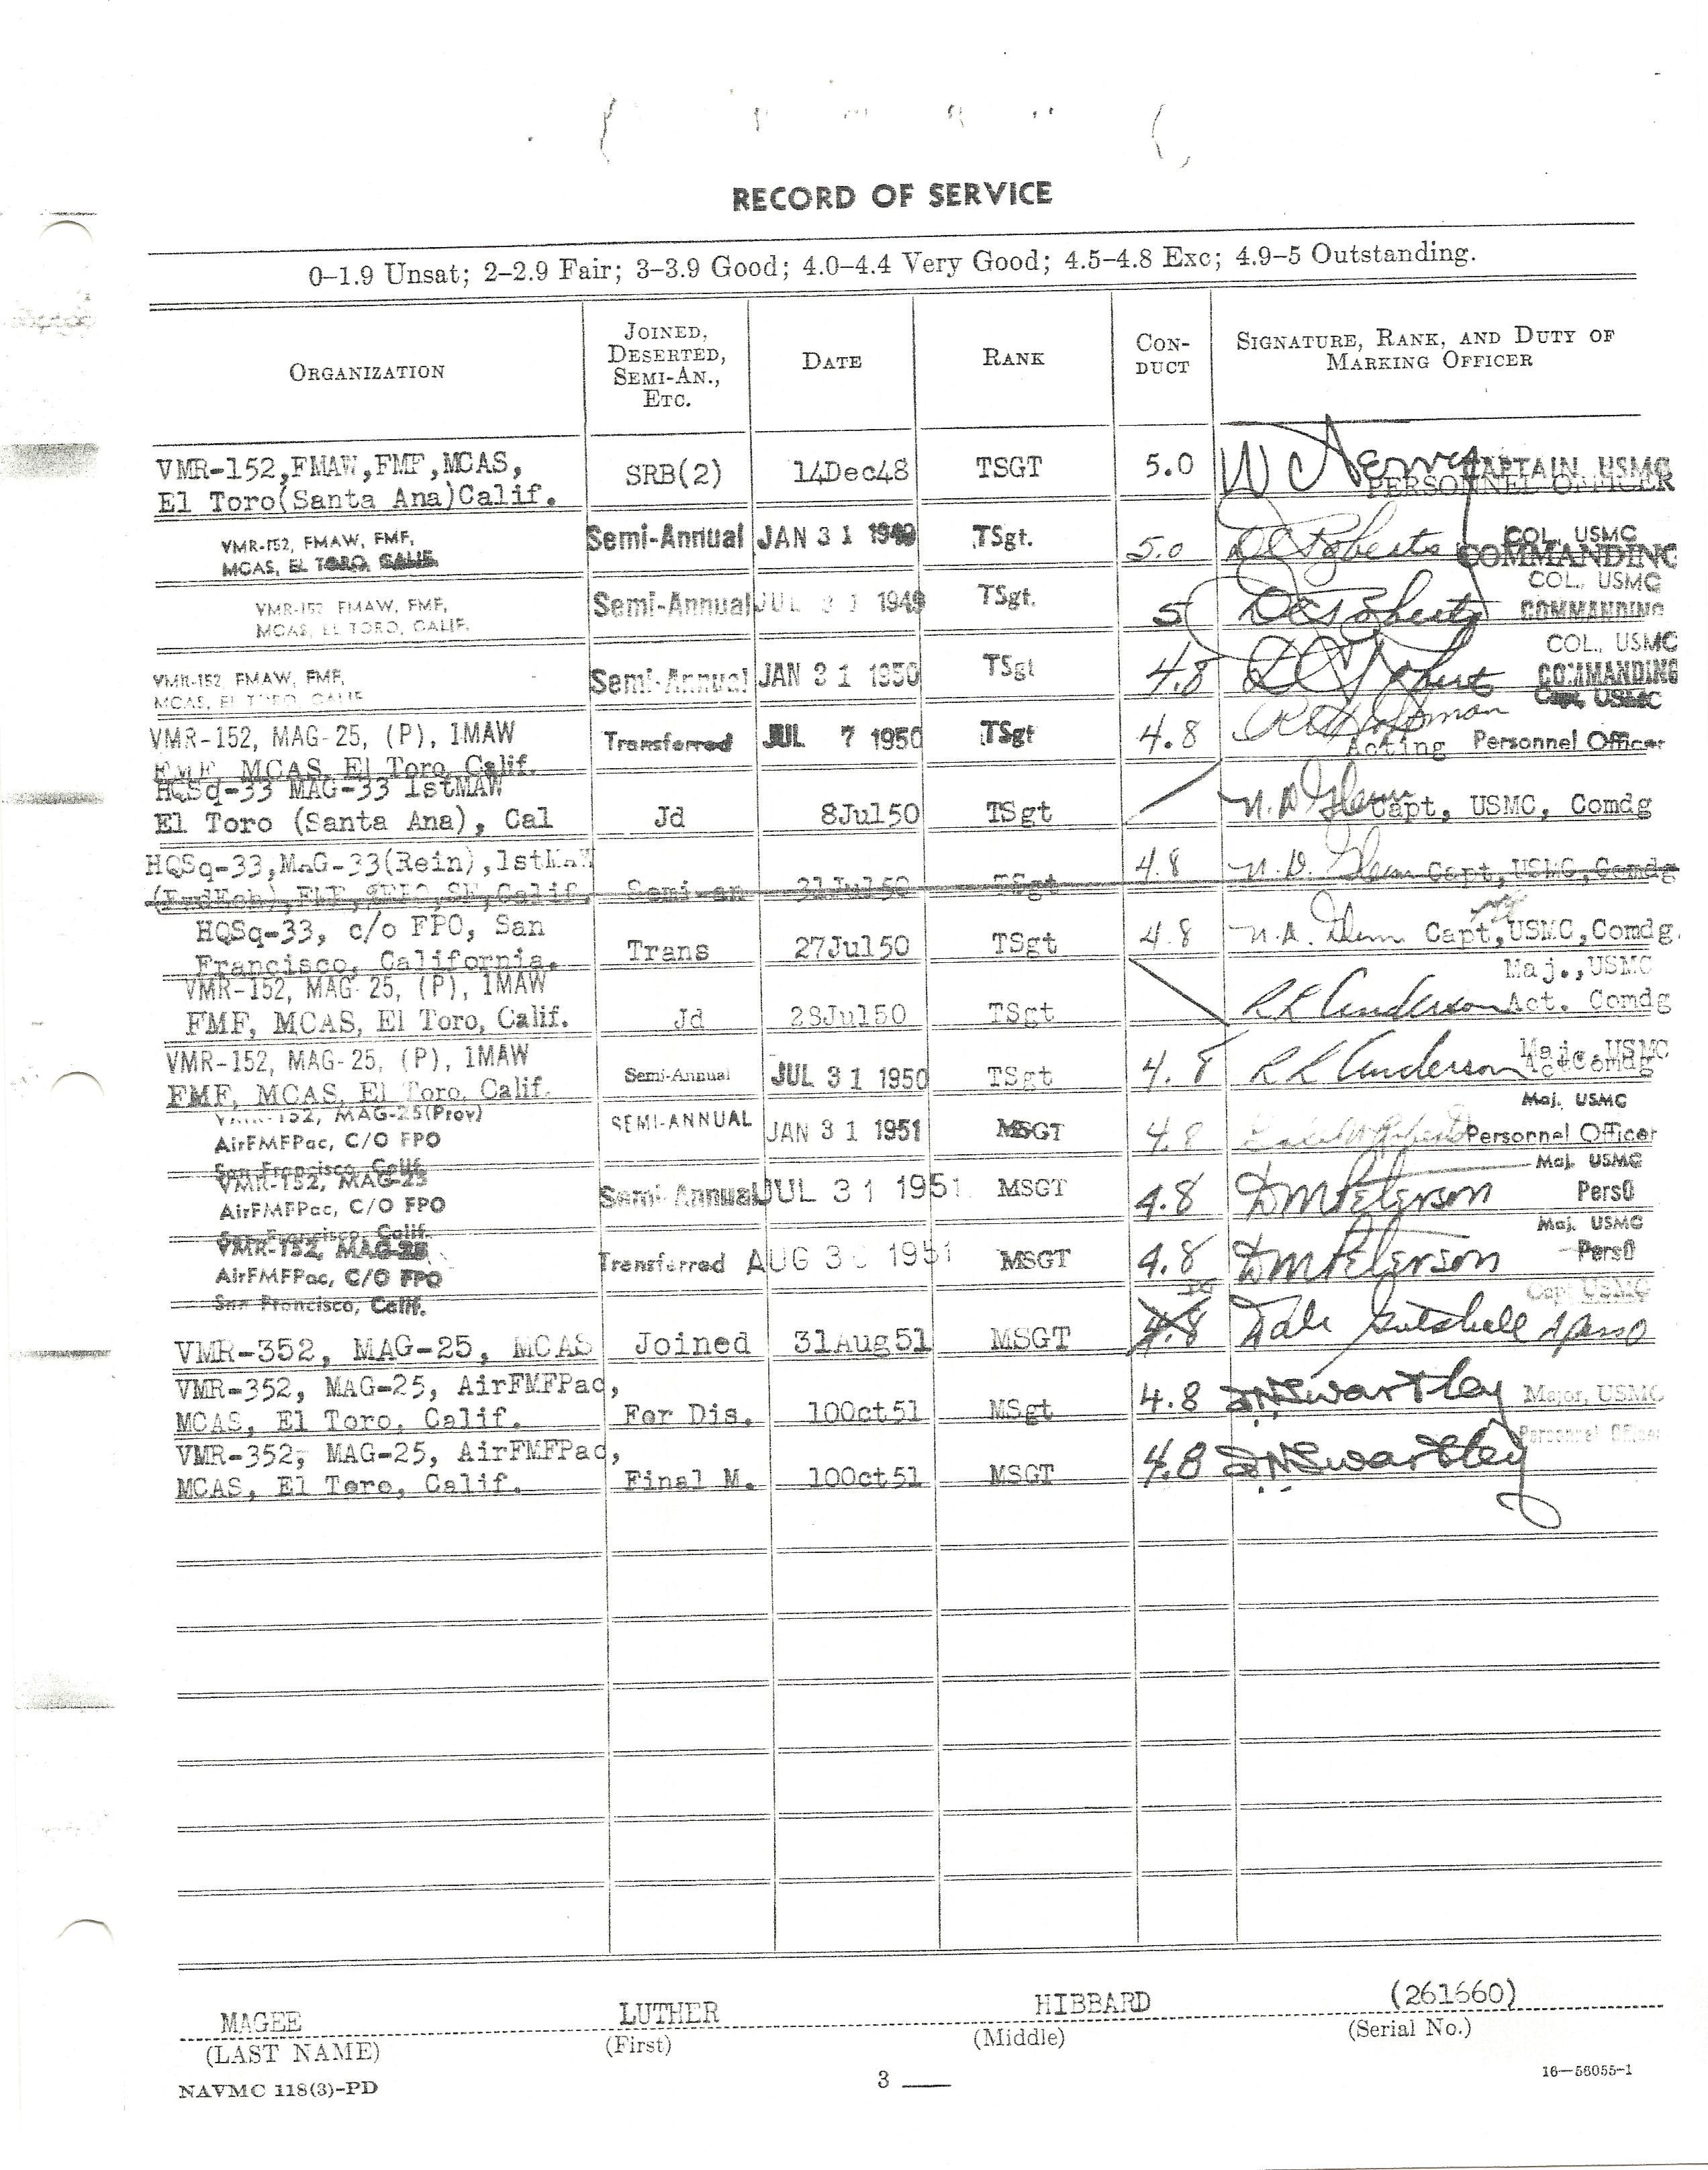 RECORD OF SERVICE
0–1.9 Unsat; 2–2.9 Fair; 3–3.9 Good; 4.0–4.4 Very Good; 4.5–4.8 Exc; 4.9–5 Outstanding.
ORGANIZATION JOINED, DESERTED, SEMI-AN., ETC. DATE RANK CON-DUCT SIGNATURE, RANK, AND DUTY OF MARKING OFFICER
VMR-152,FMAW,FMF,MCAS, CAPTAIN, USMC
El Toro(Santa Ana)Calif. SRB(2) 14Dec48 TSGT 5.0 PERSONNEL OFFICER
VMR-152, FMAW, FMF, Semi-Annual JAN 31 1949 TSgt. 5.0 D C Roberts COL., USMC
MCAS, EL TORO, CALIF. COMMANDING
VMR-152 FMAW, FMF, Semi-Annual JUL 31 1949 TSgt. 5 D C Roberts COL., USMC
MCAS, EL TORO, CALIF. COMMANDING
VMR-152 FMAW, FMF, Semi-Annual JAN 31 1950 TSgt 4.8 D C Roberts COL., USMC
MCAS, EL TORO CALIF COMMANDING
VMR-152, MAG-25, (P), 1MAW Transferred JUL 7 1950 TSgt 4.8 Capt, USMC
FMF, MCAS, El Toro, Calif. Acting Personnel Officer
HQSq-33 MAG-33 1stMAW
El Toro (Santa Ana), Cal Jd 8Jul50 TSgt Capt, USMC, Comdg
HQSq-33,MAG-33(Rein),1stMAW 4.8
FMF, Calif. Semi-an 31Jul50 TSgt Capt,USMC,Comdg
HQSq-33, c/o FPO, San
Francisco, California. Trans 27Jul50 TSgt 4.8 Capt,USMC,Comdg.
VMR-152, MAG-25, (P), 1MAW Maj.,USMC
FMF, MCAS, El Toro, Calif. Jd 28Jul50 TSgt R R Anderson Act. Comdg
VMR-152, MAG-25, (P), 1MAW Maj., USMC
FMF, MCAS, El Toro, Calif. Semi-Annual JUL 31 1950 TSgt 4.8 R R Anderson Act Comdg
VMR-152, MAG-25(Prov) Maj. USMC
AirFMFPac, C/O FPO SEMI-ANNUAL JAN 31 1951 MSGT 4.8 Personnel Officer
San Francisco, Calif.
VMR-152, MAG-25 Maj. USMC
AirFMFPac, C/O FPO Semi-Annual JUL 31 1951 MSGT 4.8 D M Peterson PersO
San Francisco, Calif.
VMR-152, MAG-25 Maj. USMC
AirFMFPac, C/O FPO Transferred AUG 30 1951 MSGT 4.8 D M Peterson PersO
San Francisco, Calif.
Capt USMC
VMR-352, MAG-25, MCAS Joined 31Aug51 MSGT 4.8 Dale
VMR-352, MAG-25, AirFMFPac,
MCAS, El Toro, Calif. For Dis. 10Oct51 MSgt 4.8 Swartley Major, USMC
Personnel Officer
VMR-352, MAG-25, AirFMFPac,
MCAS, El Toro, Calif. Final M. 10Oct51 MSGT 4.8 Swartley
MAGEE LUTHER HIBBARD (261660)
(LAST NAME) (First) (Middle) (Serial No.)
NAVMC 118(3)-PD 3 16—56055-1